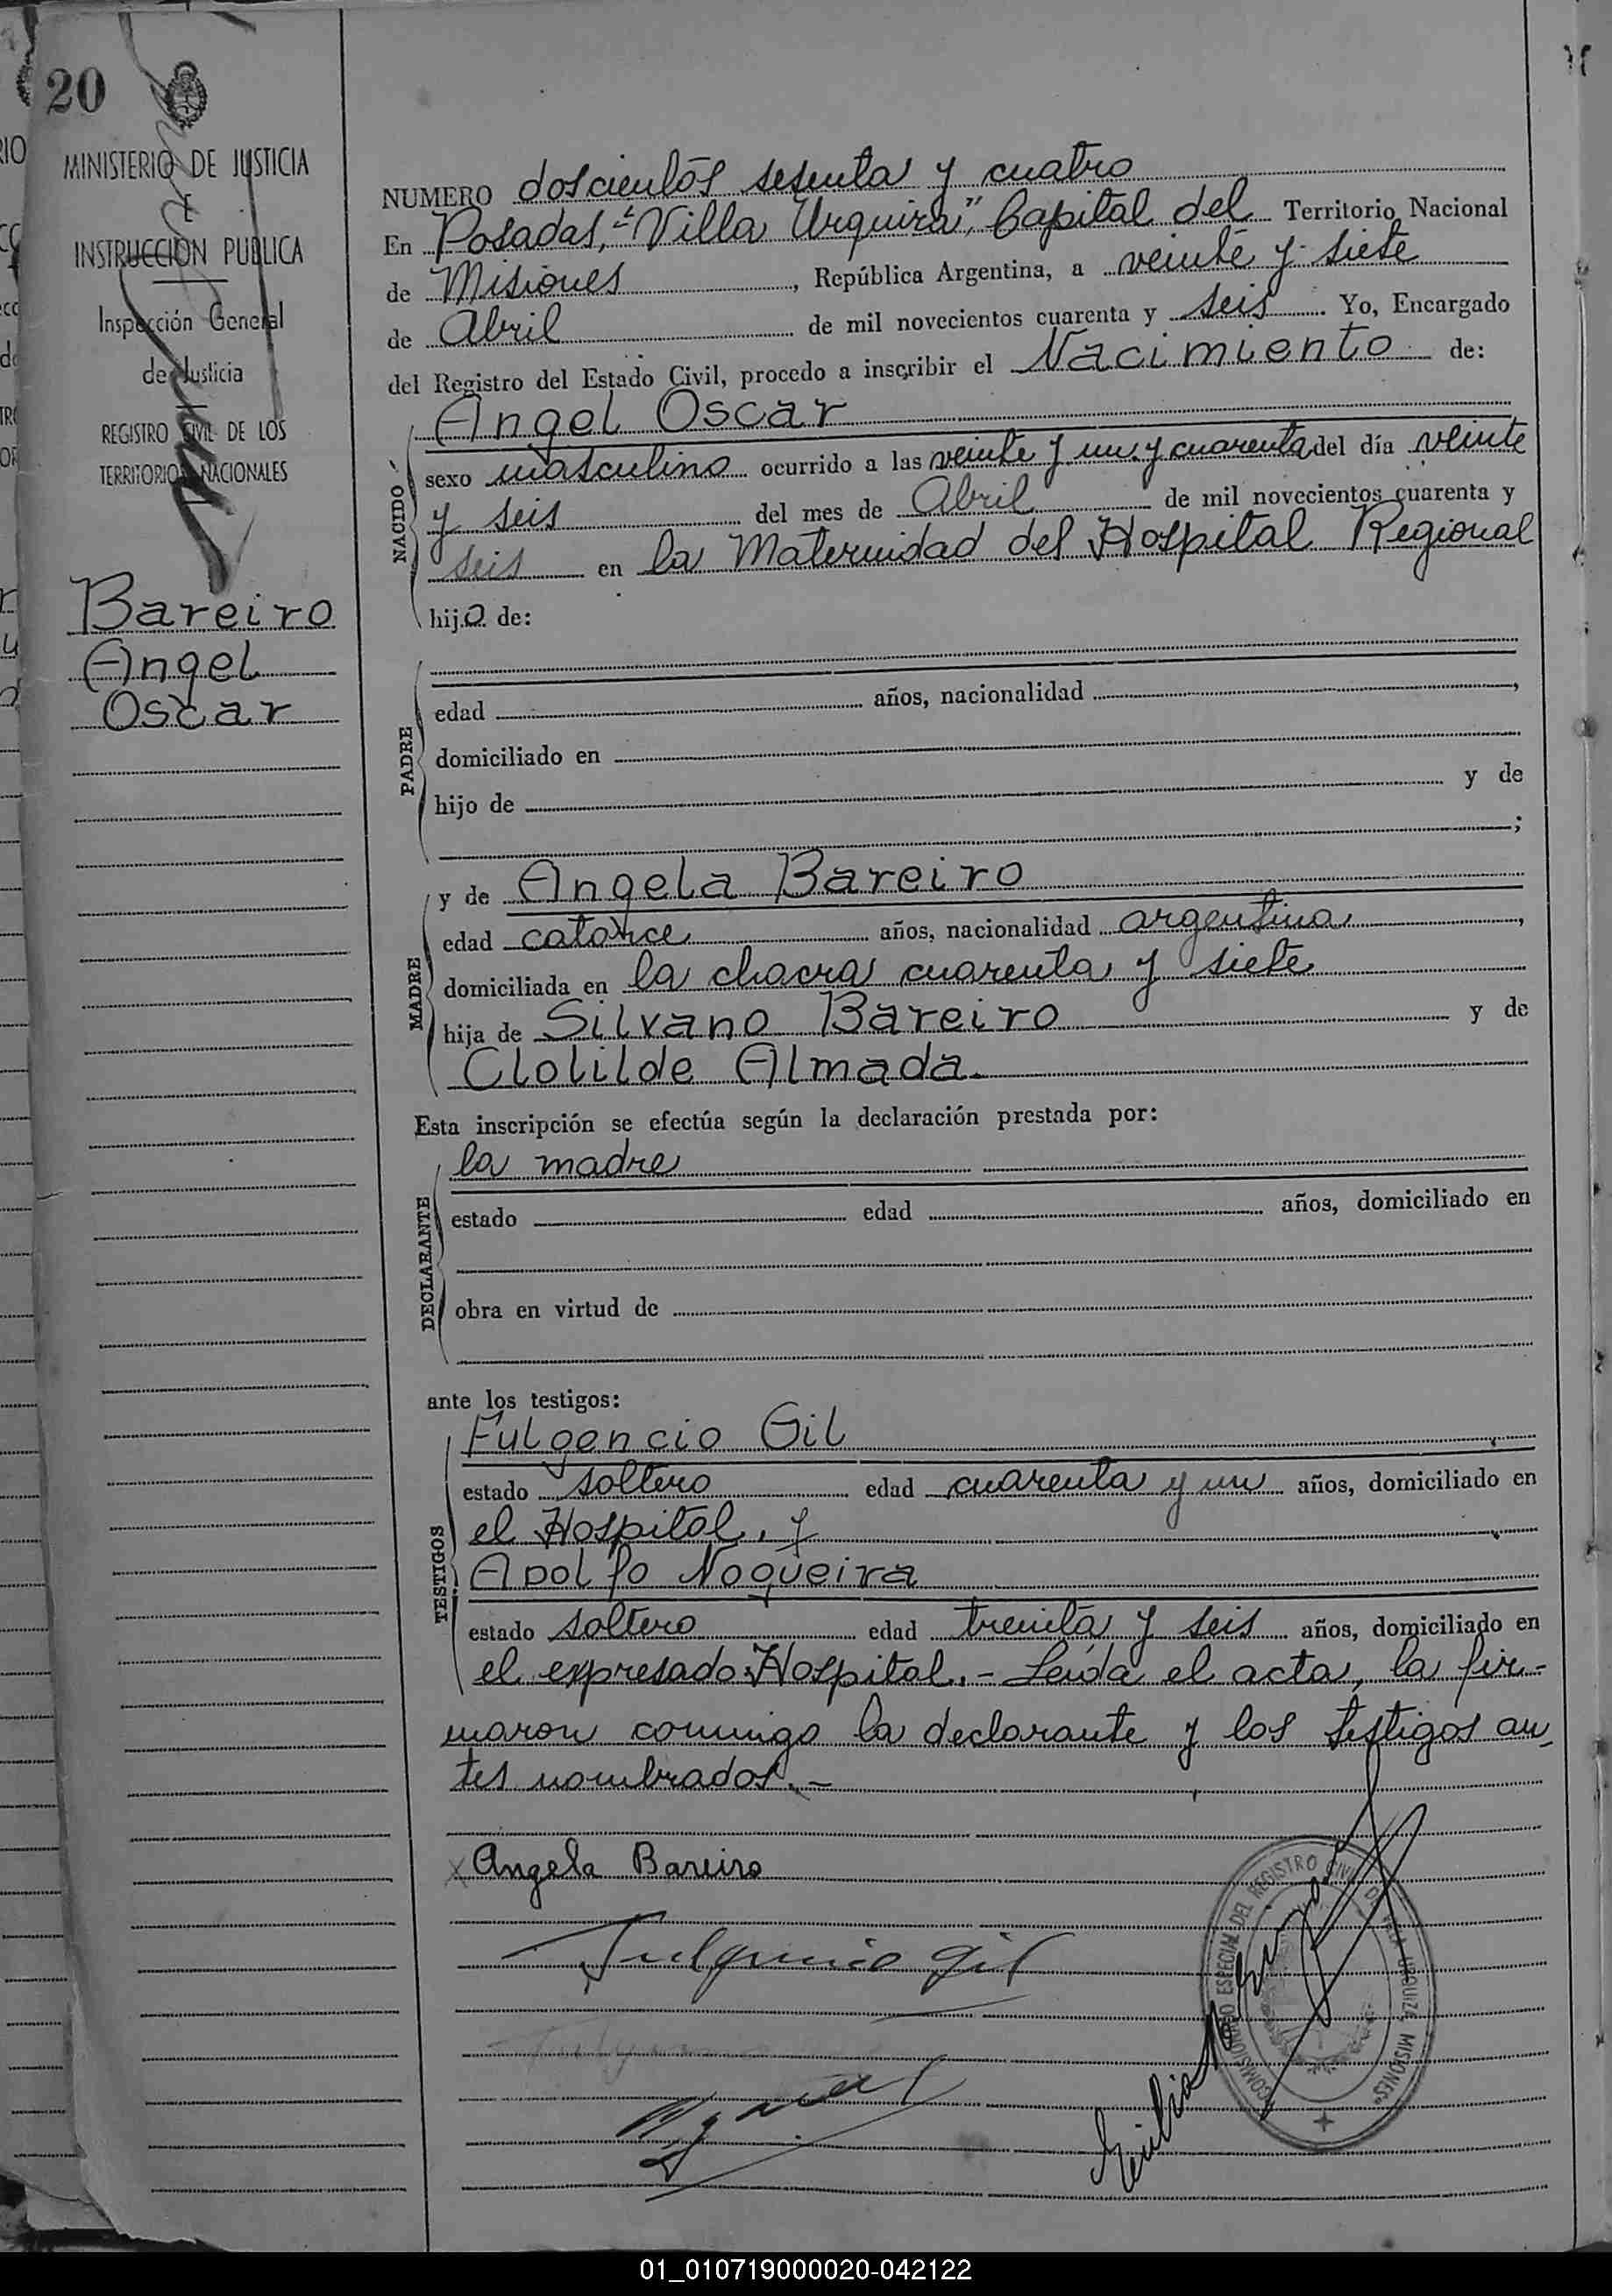 20
MINISTERIO DE JUSTICIA
E
INSTRUCCION PUBLICA
Inspección General
de Justicia
REGISTRO CIVIL DE LOS
TERRITORIOS NACIONALES
Bareiro
Angel
Oscar
NUMERO doscientos sesenta y cuatro
En Posadas, "Villa Urquiza", Capital del Territorio Nacional
de Misiones, República Argentina, a veinte y siete
de Abril de mil novecientos cuarenta y seis. Yo, Encargado
del Registro del Estado Civil, procedo a inscribir el Nacimiento de:
NACIDO
Angel Oscar
sexo masculino ocurrido a las veinte y un y cuarenta del día veinte
y seis del mes de Abril de mil novecientos cuarenta y
seis en la Maternidad del Hospital Regional
hijo de:
PADRE
edad años, nacionalidad ,
domiciliado en
hijo de y de
;
MADRE
y de Angela Bareiro
edad catorce años, nacionalidad argentina,
domiciliada en la chacra cuarenta y siete
hija de Silvano Bareiro y de
Clotilde Almada.
Esta inscripción se efectúa según la declaración prestada por:
DECLARANTE
la madre
estado edad años, domiciliado en
obra en virtud de
ante los testigos:
TESTIGOS
Fulgencio Gil
estado soltero edad cuarenta y un años, domiciliado en
el Hospital, y
Adolfo Nogueira
estado soltero edad treinta y seis años, domiciliado en
el expresado Hospital.- Leída el acta, la fir-
maron conmigo la declarante y los testigos an-
tes nombrados.-
x Angela Bareiro
Fulgencio Gil
COMISIONADO ESPECIAL DEL REGISTRO CIVIL DE VILLA URQUIZA, MISIONES
01_010719000020-042122